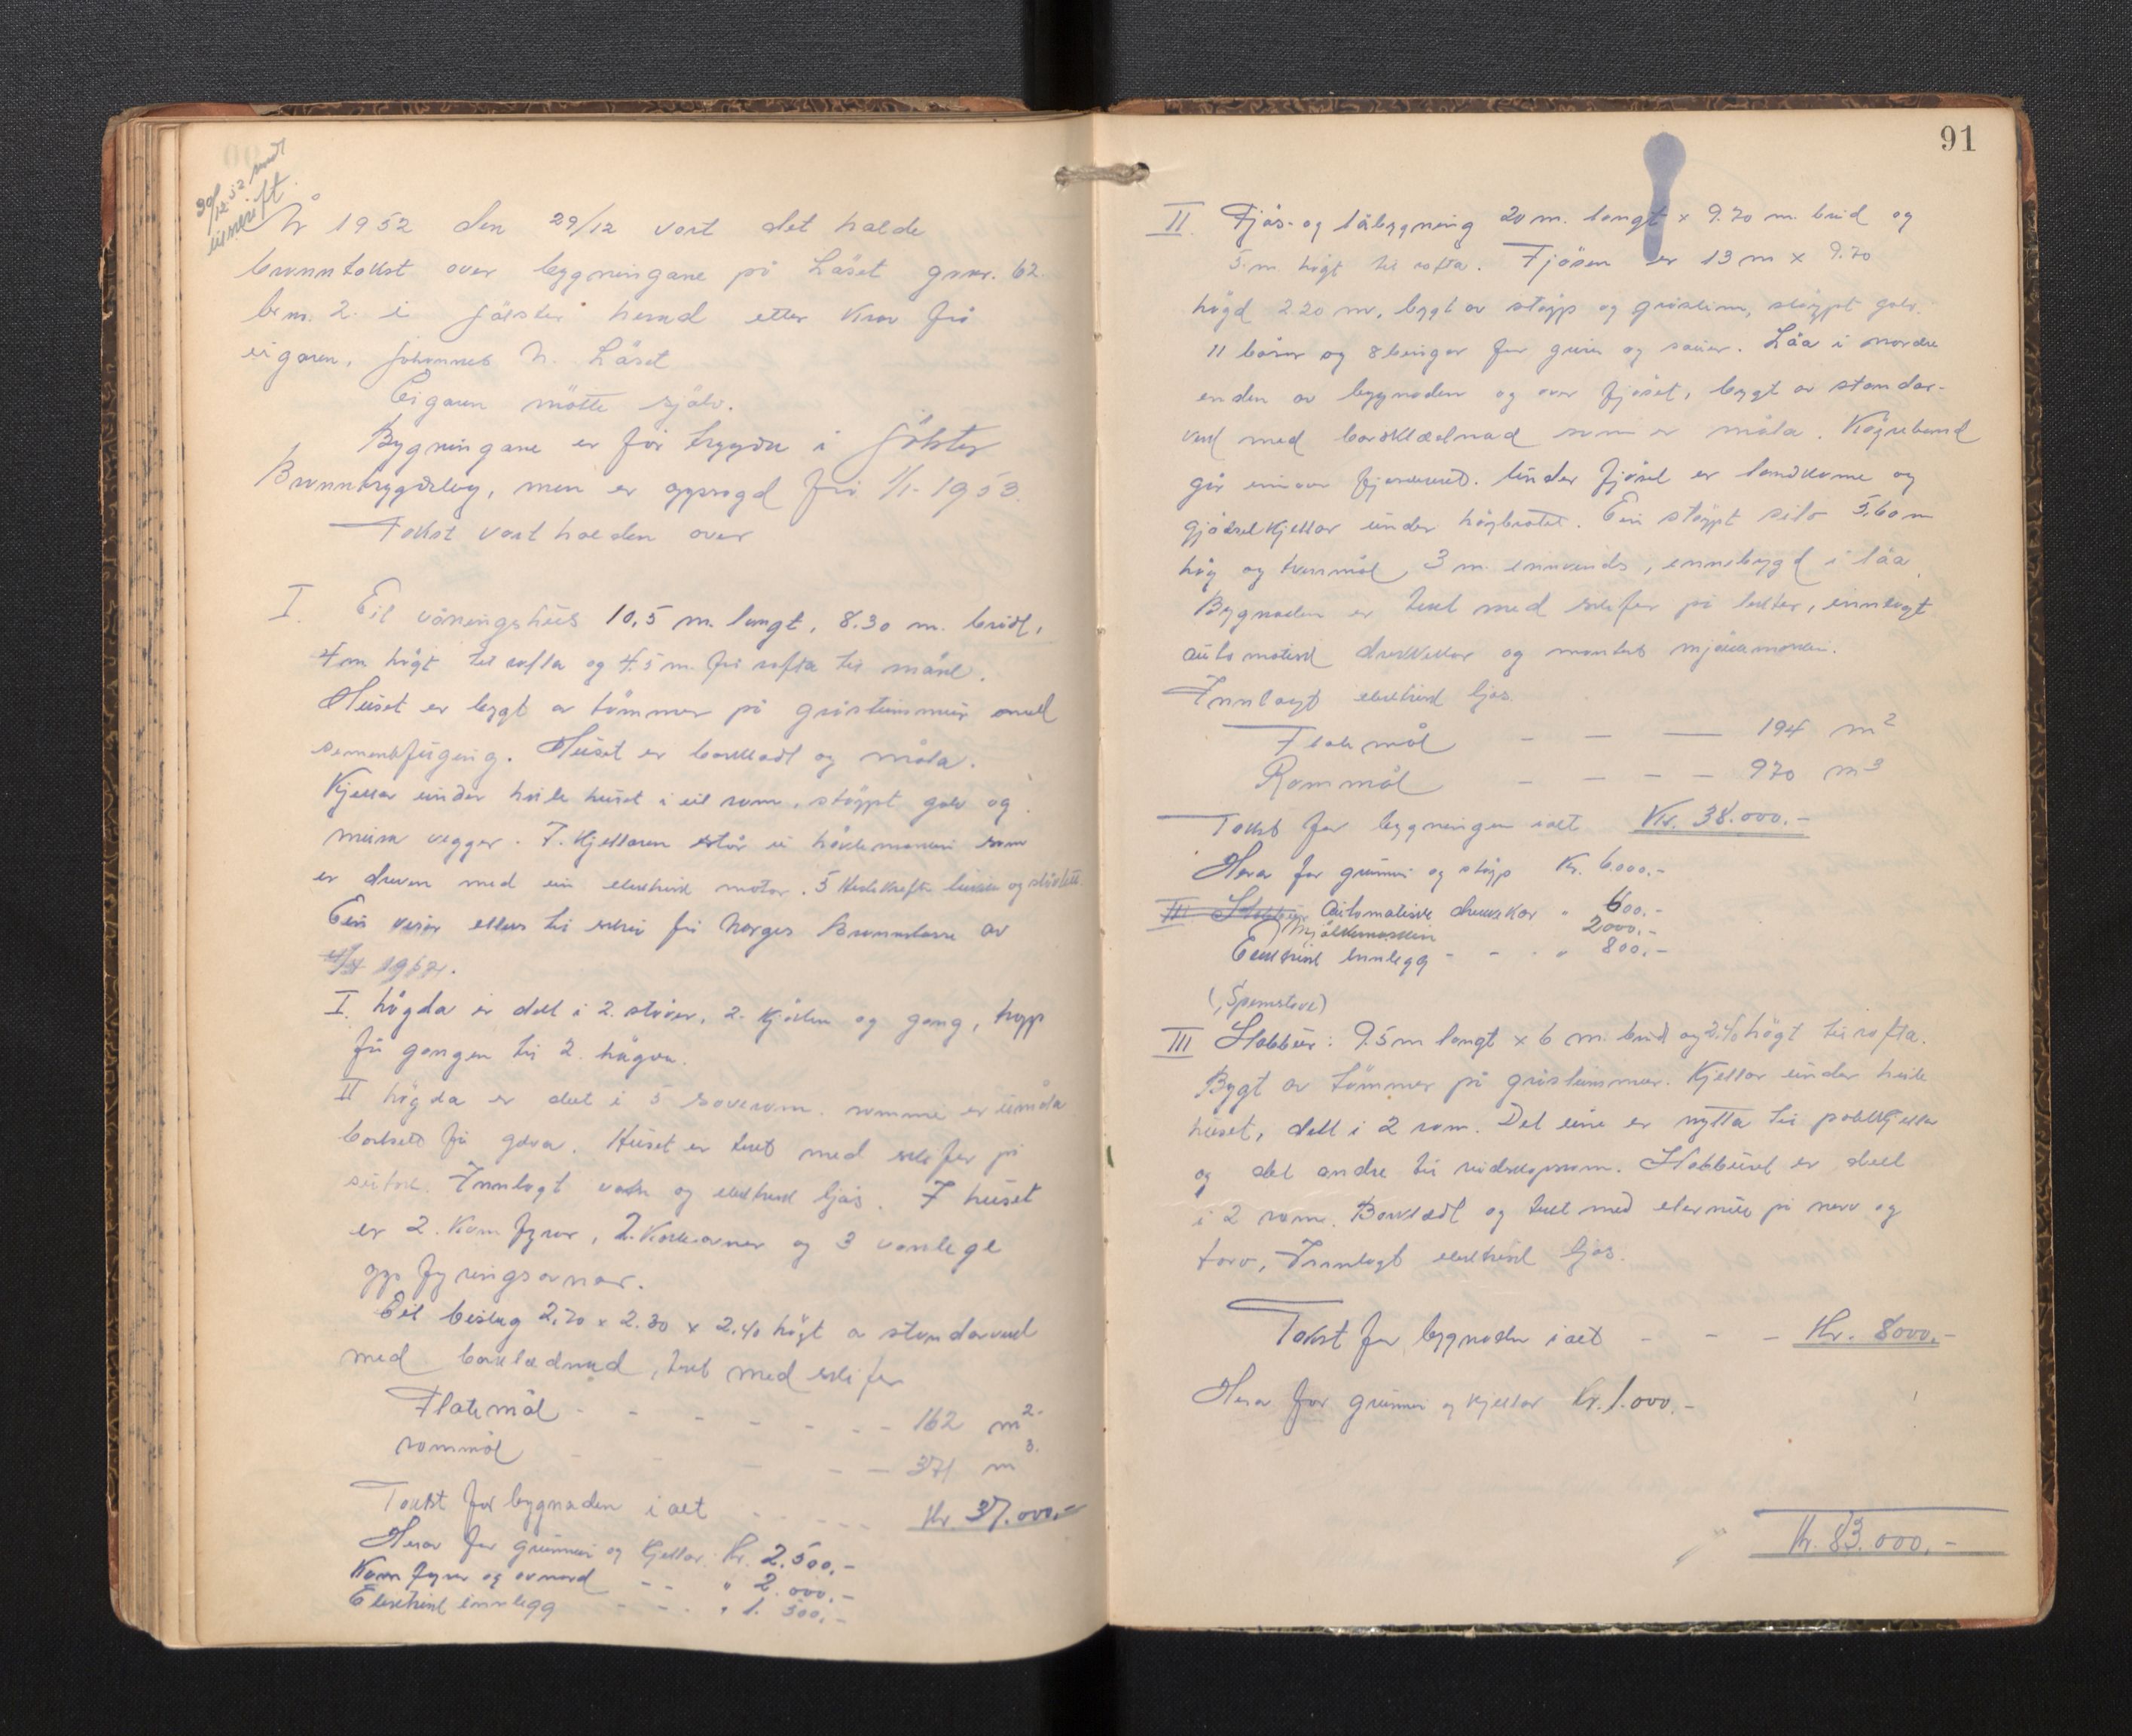 30/12.52 sendt
utskrift.
År 1952 den 29/12 vart det halde
branntakst over bygningane på Låset gnr. 62
br.nr. 2. i Jølster herad etter krav frå
eigaren, Johannes N. Låset
Eigaren møtte sjølv.
Bygningane er før trygda i Jølster
Branntrygdelag, men er oppsagd frå 1/1-1953.
Takst vart halden over
I. Eit våningshus 10,5 m. langt, 8.30 m. breidt,
4 m høgt til rafta og 4.5 m. frå rafta til møne.
Huset er bygt av tømmer på gråsteinsmur med
sementfuging. Huset er bordkledt og måla.
Kjellar under heile huset i eit rom, støypt golv og
mura vegger. I kjellaren står ei høvlemaskin som
er dreven med ein elektrisk motor. 5 hestekrefter
Ein viser ellers til skriv frå Norges Brannkasse av
1952.
I. høgda er delt i 2. stover, 2. kjøken og gang, trapp
frå gangen til 2. høgda.
II høgda er delt i 5 soverom. romma er umåla
bortsett frå golva. Huset er tekt med skifer på
sutak. Innlagt vatn og elektrisk ljos. I huset
er 2. komfyrar, 2. kokeovner og 3 vanlege
oppfyringsovnar.
Eit bislag 2,70 x 2.30 x 2.40 høgt av standarverk
med bordklædnad, tekt med skifer
Flatemål - - - - - - - 162 m2.
rommål - - - - - 371 m3.
Takst for bygnaden i alt - - - - - Kr. 37.000,-
Herav for grunnmur og kjellar. Kr. 2.500,-
Komfyrer og ovnar - - " 2.000,-
Elektrisk innlegg - - - " 1.500,-
91
II. Fjøs- og løbygning 20 m. langt x 9.70 m. breid og
5. m høgt til rafta. Fjøsen er 13 m x 9.70
høgd 2.20 m, bygt av støyp og gråstein, støypt golv.
11 båsar og 8 bingar for gris og sauer. Løa i nordre
enden av bygnaden og over fjøset, bygt av standar-
verk med bordklædnad som er måla. Køyrebrua
går inn over fjøset. Under fjøset er landkume og
gjødselkjellar under høybrotet. Ein støypt silo 5.60 m
høg og tverrmål 3 m. innvendes, innebygd i løa.
Bygnaden er tekt med skifer på lekter, innlagt
automatisk drikkekar og montert mjølkemaskin.
Innlagt elektrisk ljos.
Flatemål - - - 194 m2
Rommål - - - - 970 m3
Takst for bygningen i alt Kr. 38.000.-
Herav for grunnmur og støyp Kr. 6.000.-
III. Stabbur Automatisk drikkekar " 600.-
Mjølkemaskin 2000.-
Elektrisk innlegg - - " 800.-
("Spenstove)
III Stabbur: 9.5 m langt x 6 m. breid og 2.40 høgt til rafta.
Bygt av tømmer på gråsteinsmur. Kjellar under heile
huset, delt i 2 rom. Det eine er nytta til potetkjellar
og det andre til reidskapsrom. Stabburet er delt
i 2 rom. Bordklædt og tekt med eternit på never og
torv, Innlagt elektrisk ljos.
Takst for bygnaden i alt - - - Kr. 8000.-
Herav for grunnmur og kjellar Kr. 1.000.-
Kr. 83.000,-